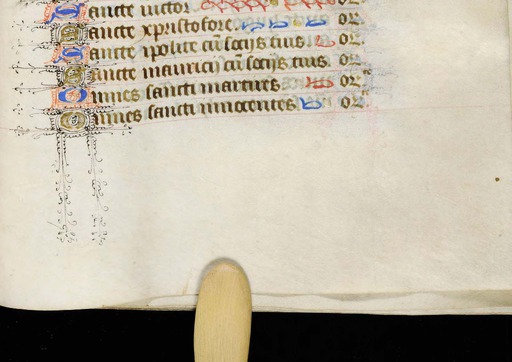 Sancte victor. or
Sancte xpristofore. or
Sancte ipolite cū socijs tuis or.
Sancte mauricij cū socijs tuis. or.
Omnes sancti martires or.
Omnes sancti innocentes or.